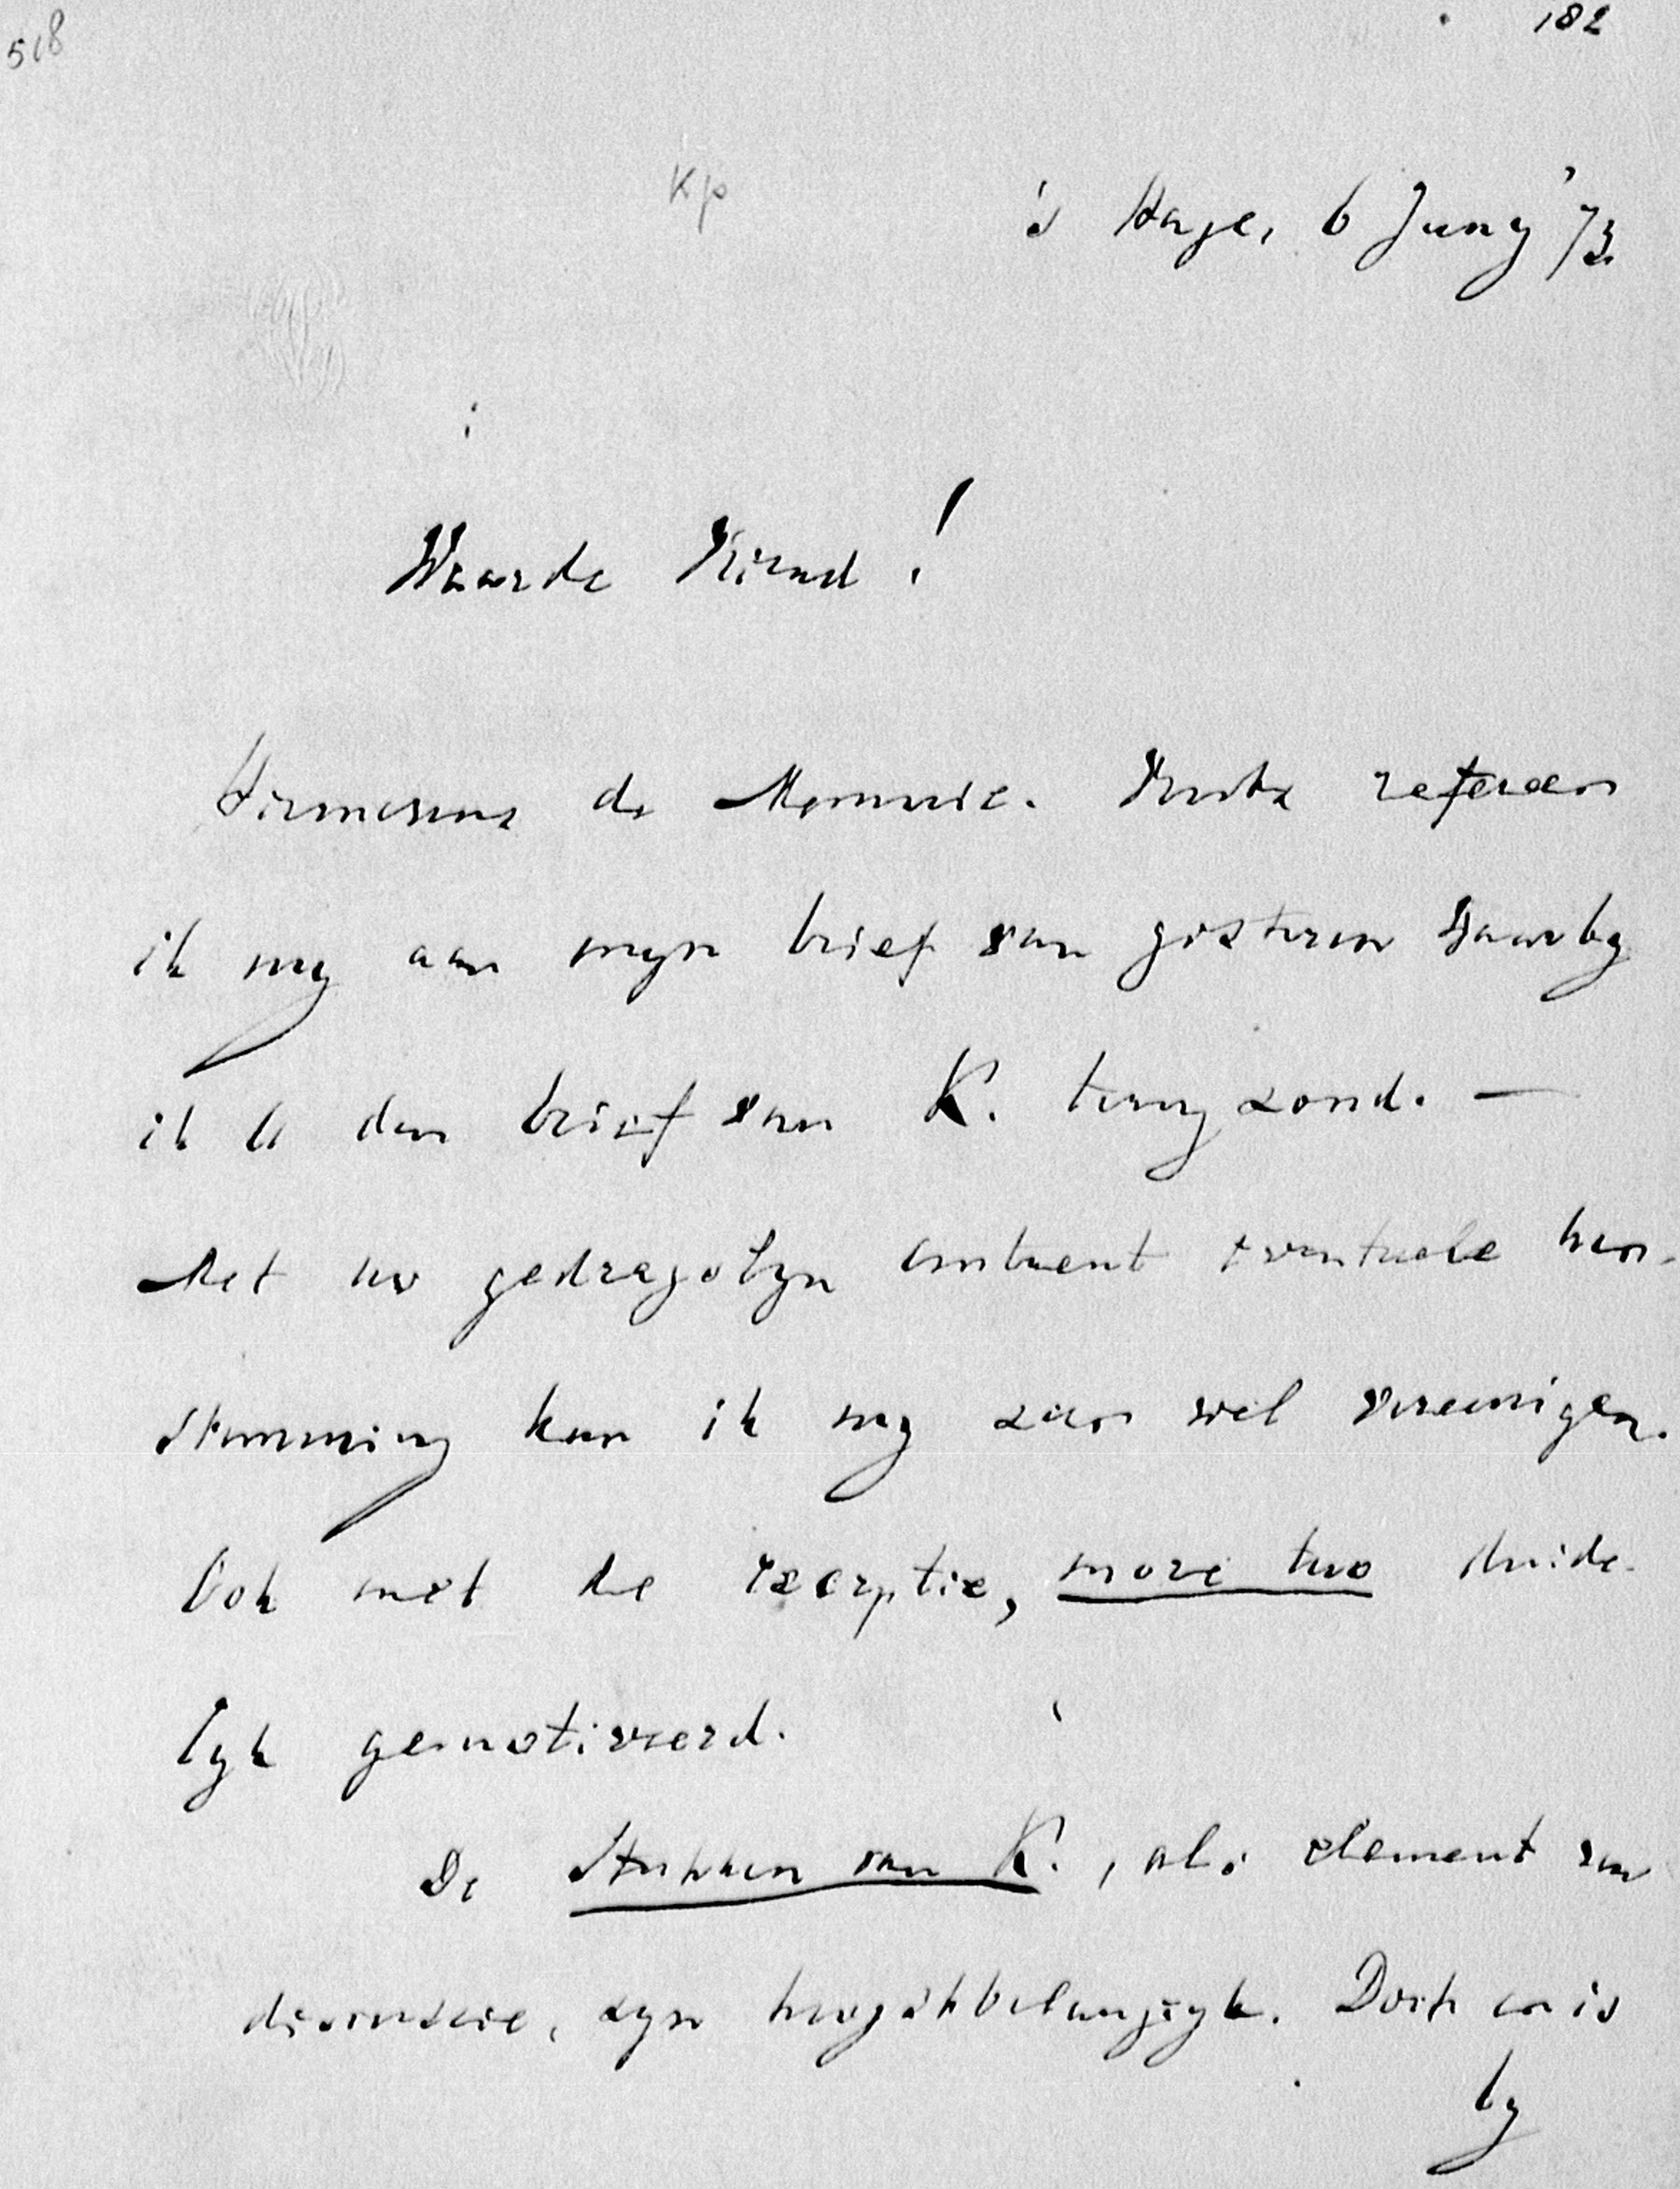 518
182
Kp
's Hage, 6 Juny '73.
Waarde Vriend!
Hiernevens de Memorie. Voorts refereer
ik my aan myn brief van gisteren waarby
ik U den brief van K. terug zond. —
Met uw gedragslyn omtrent eventuele her-
stemming kan ik my zeer wel vereenigen.
Ook met de exceptie, more tuo duide-
lyk gemotiveerd.
De Stukken van K., als element van
discussie, zyn hoogstbelangryk. Doch er is
by